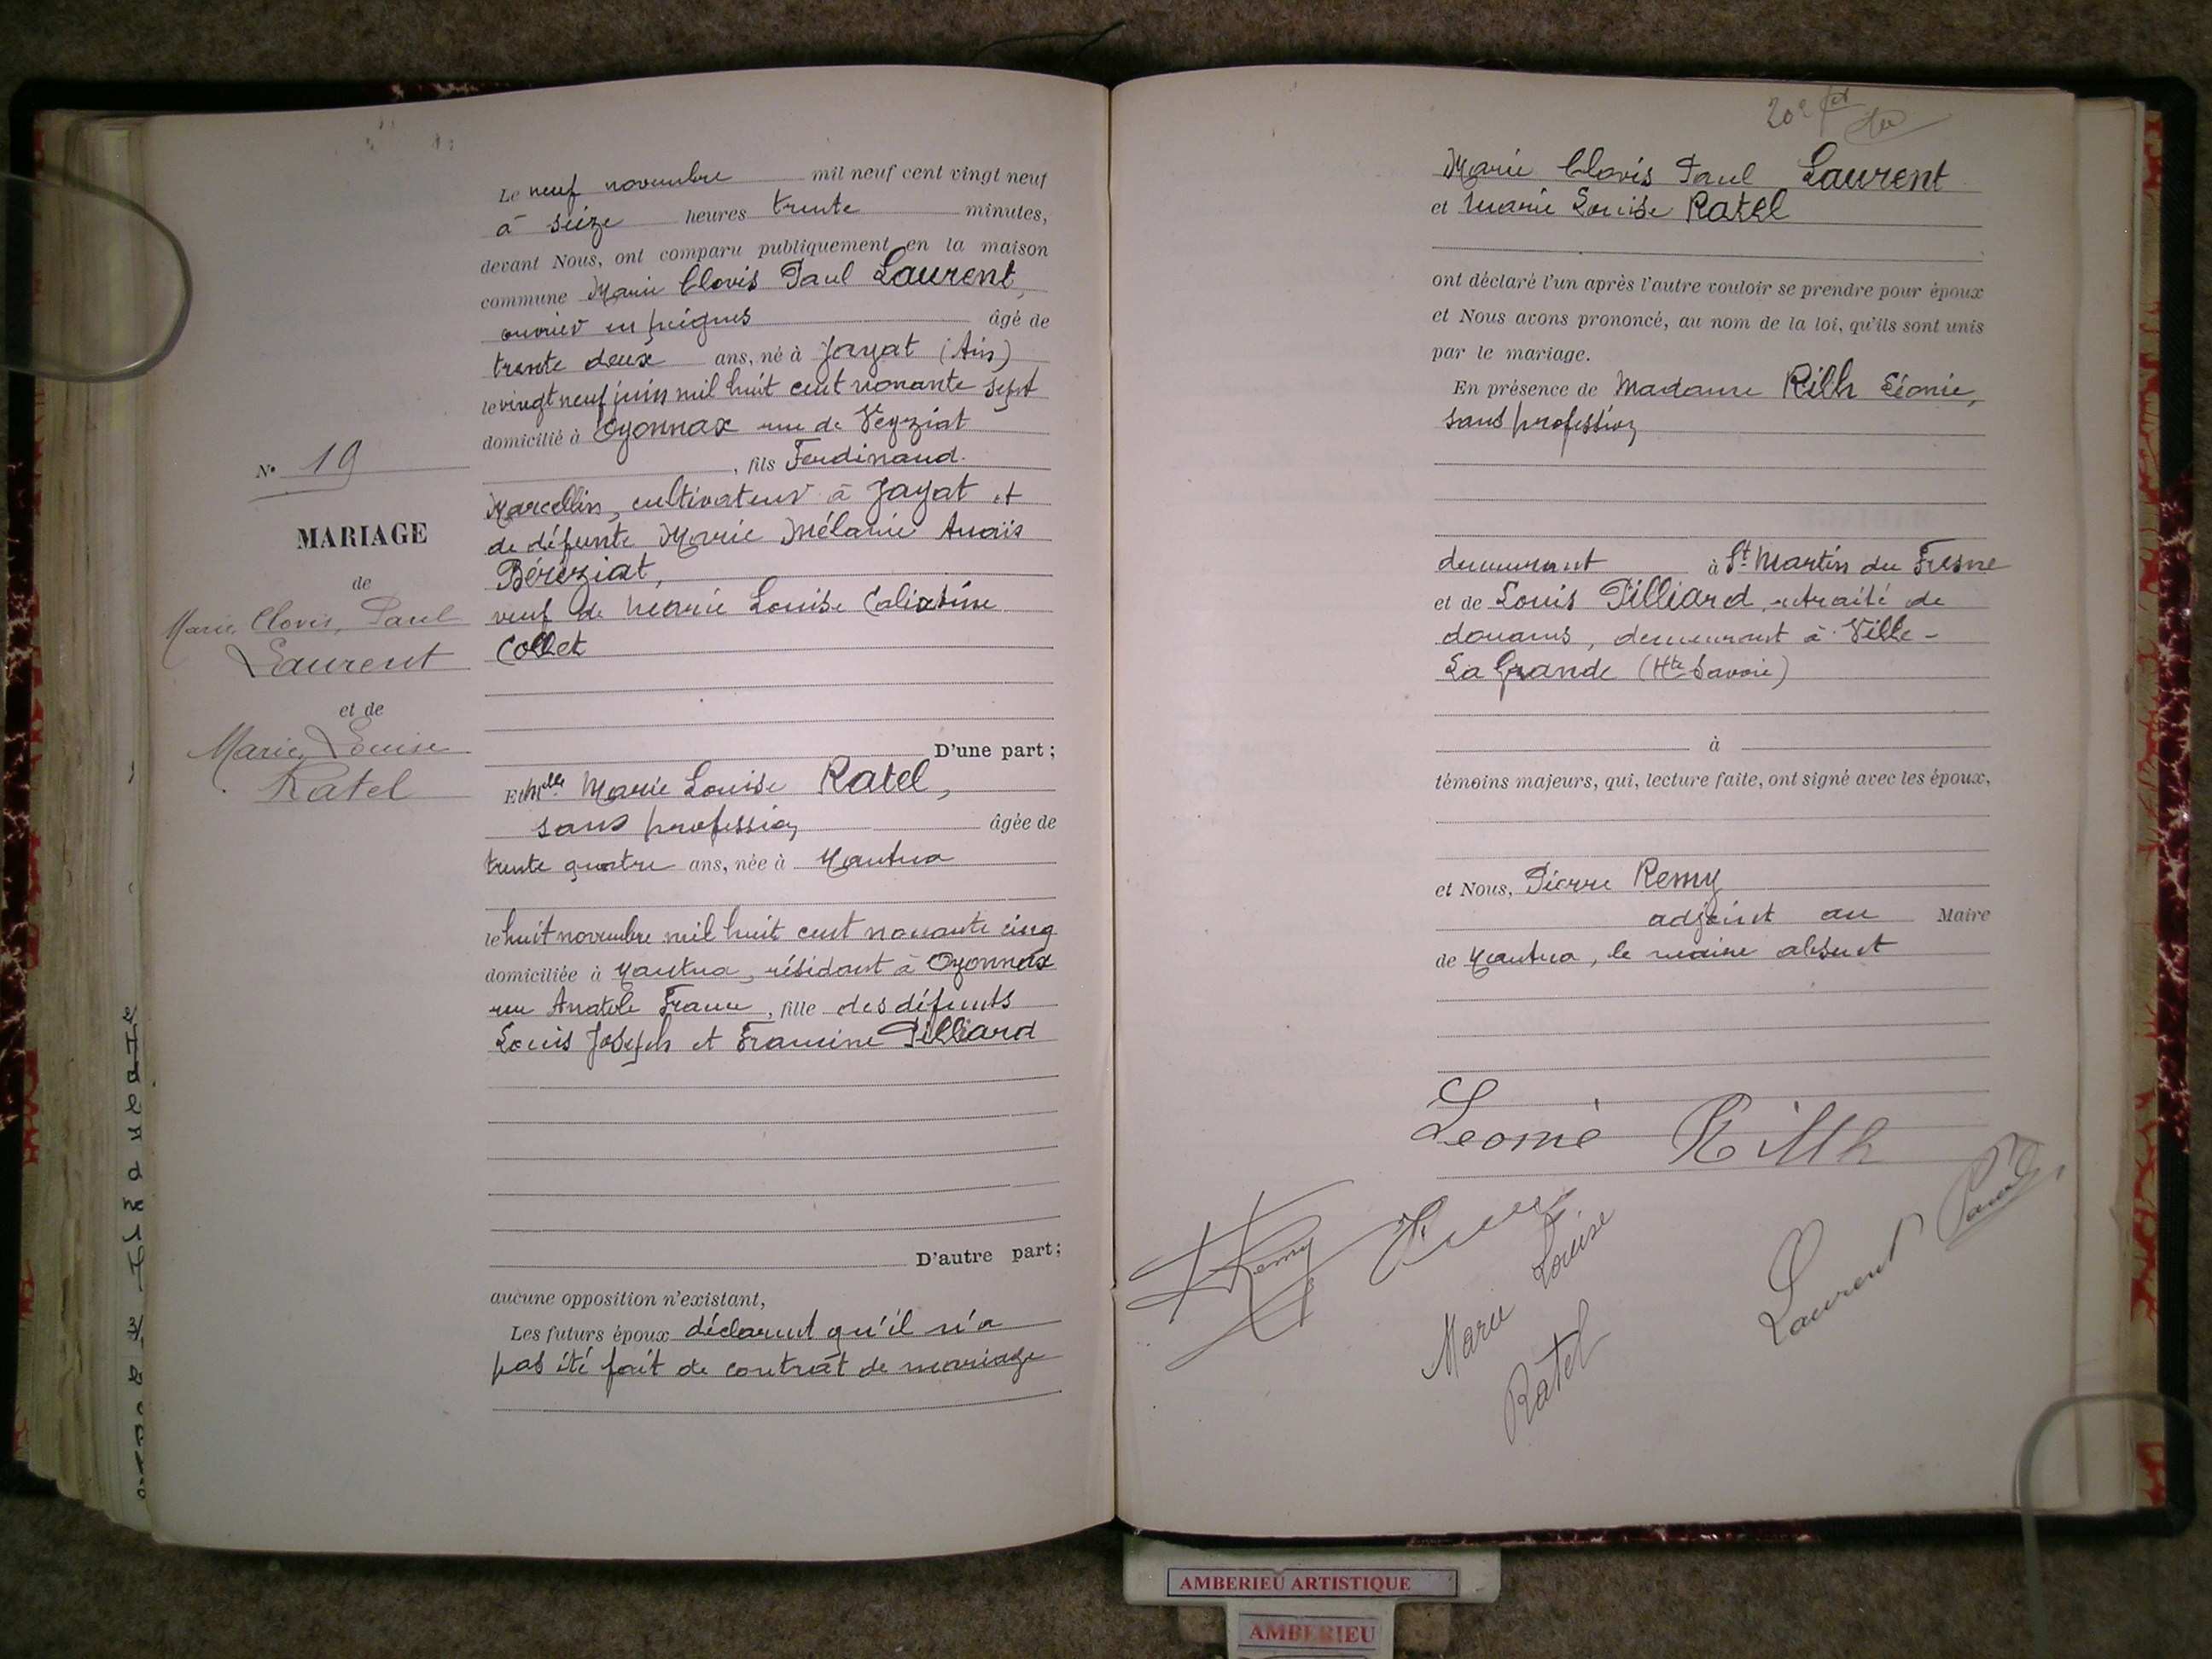 Nº 19
MARIAGE
de
Marie, Clovis, Paul
Laurent
et de
Marie, Louise
Ratel
Le neuf novembre mil neuf cent vingt neuf
à seize heures trente minutes,
devant Nous, ont comparu publiquement en la maison
commune Marie Clovis Paul Laurent,
ouvrier en peignes âgé de
trente deux ans, né à Jayat (Ain)
le vingt neuf juin mil huit cent nonante sept
domicilié à Oyonnax rue de Veyziat
, fils Ferdinand
Marcellin, cultivateur à Jayat et
de défunte Marie Mélanie Anaïs
Béréziat,
veuf de Marie Louise Calixtine
Collet
D'une part ;
Et Melle Marie Louise Ratel,
sans profession âgée de
trente quatre ans, née à Nantua
le huit novembre mil huit cent nonante cinq
domiciliée à Nantua, résidant à Oyonnax
rue Anatole France, fille des défunts
Louis Joseph et Francine Pilliard
D'autre part ;
aucune opposition n'existant,
Les futurs époux déclarent qu'il n'a
pas été fait de contrat de mariage
20e
Marie Clovis Paul Laurent
et Marie Louise Ratel
ont déclaré l'un après l'autre vouloir se prendre pour époux
et Nous avons prononcé, au nom de la loi, qu'ils sont unis
par le mariage.
En présence de Madame Rilh Léonie,
sans profession
demeurant à St Martin du Fresne
et de Louis Pilliard, retraité de
douanes, demeurant à Ville-
La Grande (Hte Savoie)
à
témoins majeurs, qui, lecture faite, ont signé avec les époux,
et Nous, Pierre Remy
adjoint au Maire
de Nantua, le maire absent
Leonie Rilh
Remy
Marie Louise
Ratel
Laurent Paul
AMBERIEU ARTISTIQUE
AMBERIEU